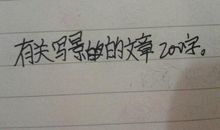 有关写景的的文章200字。